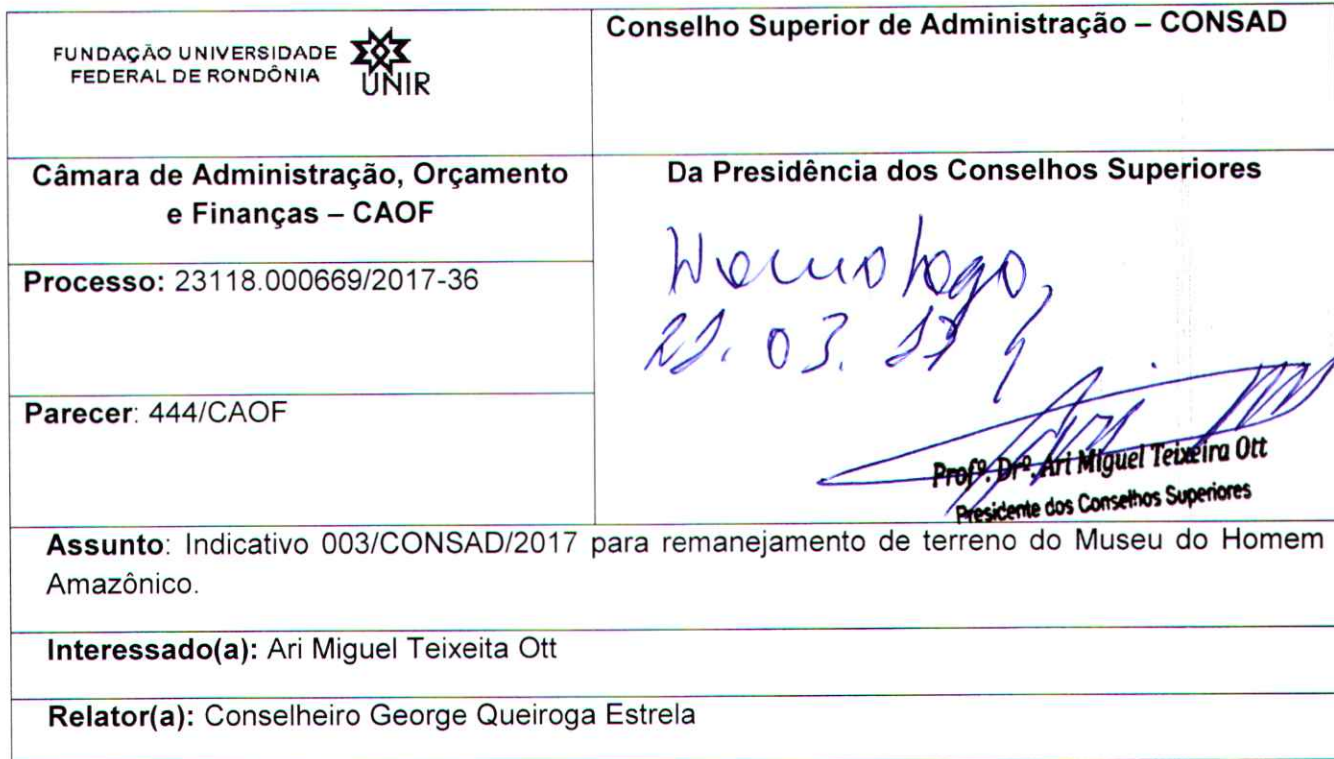 FUNDAÇÃO UNIVERSIDADE
FEDERAL DE RONDÔNIA
UNIR
Conselho Superior de Administração – CONSAD
Câmara de Administração, Orçamento
e Finanças – CAOF
Da Presidência dos Conselhos Superiores
Processo: 23118.000669/2017-36
Homologo,
21.03.17
Parecer: 444/CAOF
Profº. Drº. Ari Miguel Teixeira Ott
Presidente dos Conselhos Superiores
Assunto: Indicativo 003/CONSAD/2017 para remanejamento de terreno do Museu do Homem
Amazônico.
Interessado(a): Ari Miguel Teixeita Ott
Relator(a): Conselheiro George Queiroga Estrela